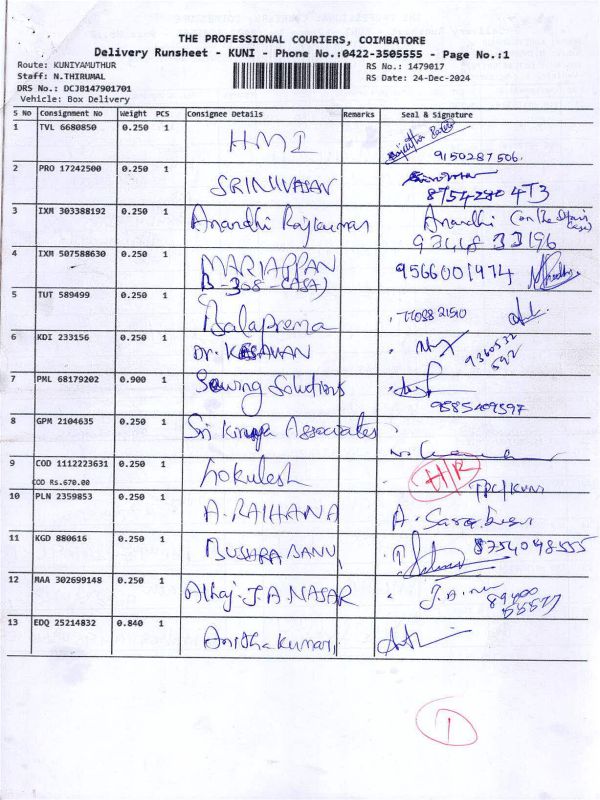 THE PROFESSIONAL COURIERS, COIMBATORE
Delivery Runsheet - KUNI - Phone No.:0422-3505555 - Page No.:1
Route: KUNIYAMUTHUR RS No.: 1479017
Staff: N.THIRUMAL RS Date: 24-Dec-2024
DRS No.: DCJB147901701
Vehicle: Box Delivery
S No Consignment No Weight PCS Consignee Details Remarks Seal & Signature
1 TVL 6680850 0.250 1 HMI
9150287506.
2 PRO 17242500 0.250 1 SRINIVASAN
3 IXM 303388192 0.250 1 Anandhi Rajkumar Anandhi
4 IXM 507588630 0.250 1 MARIAPPAN 9566001974
B-308-CASA)
5 TUT 589499 0.250 1 Balaprema
6 KDI 233156 0.250 1 Dr. KESAVAN
7 PML 68179202 0.900 1 Sewing Solutions
8 GPM 2104635 0.250 1 Sri Associates
9 COD 1112223631 0.250 1 Gokulesh H/R
COD Rs.670.00 TPC/KUNI
10 PLN 2359853 0.250 1 A. RAIHANA
11 KGD 880616 0.250 1 BUSHRA BANU 8754048555
12 MAA 302699148 0.250 1 Alhaj. J.A. NASAR
13 EDQ 25214832 0.840 1 Anitha kumari
1